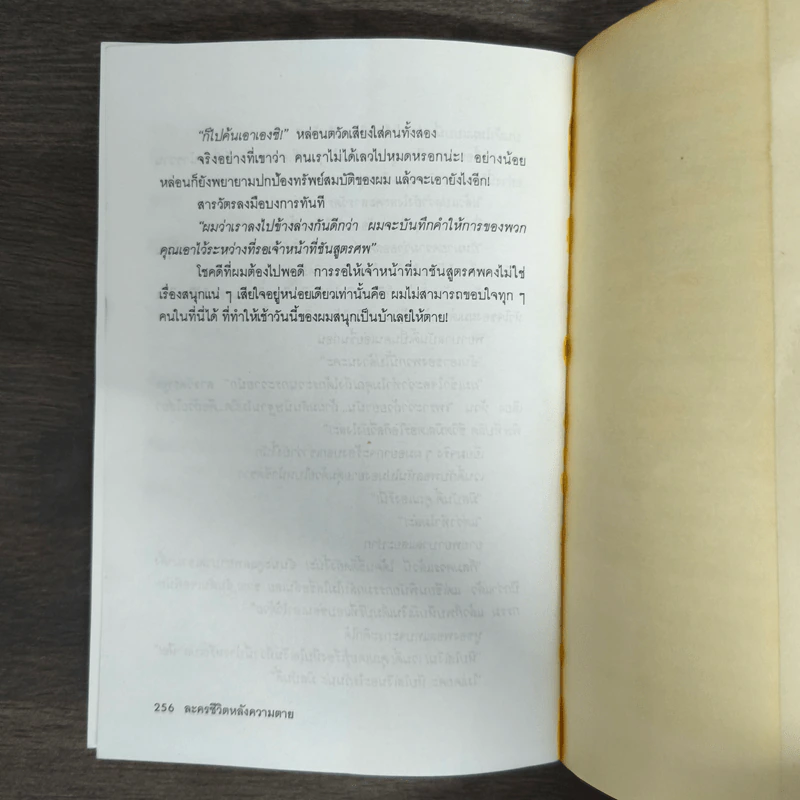 "ก็ไปค้นเอาเองซิ!" หล่อนตวัดเสียงใส่คนทั้งสอง
จริงอย่างที่เขาว่า คนเราไม่ได้เลวไปหมดหรอกน่ะ! อย่างน้อย
หล่อนก็ยังพยายามปกป้องทรัพย์สมบัติของผม แล้วจะเอายังไงอีก!
สารวัตรลงมือบงการทันที
"ผมว่าเราลงไปข้างล่างกันดีกว่า ผมจะบันทึกคำให้การของพวก
คุณเอาไว้ระหว่างที่รอเจ้าหน้าที่ชันสูตรศพ"
โชคดีที่ผมต้องไปพอดี การรอให้เจ้าหน้าที่มาชันสูตรศพคงไม่ใช่
เรื่องสนุกแน่ ๆ เสียใจอยู่หน่อยเดียวเท่านั้นคือ ผมไม่สามารถขอบใจทุก ๆ
คนในที่นี่ได้ ที่ทำให้เช้าวันนี้ของผมสนุกเป็นบ้าเลยให้ตาย!
256 ละครชีวิตหลังความตาย